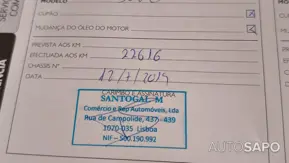 MODELO
CUPÃO
MUDANÇA DO ÓLEO DO MOTOR
PREVISTA AOS KM
EFECTUADA AOS KM 22616
CHASSIS Nº
DATA 12/7/2019
CARIMBO E ASSINATURA
SANTOGAL M
Comércio e Rep Automóveis, Lda
Rua de Campolide, 437 - 439
1070-035 Lisboa
NIF - 500.190.992
AUTOSAPO